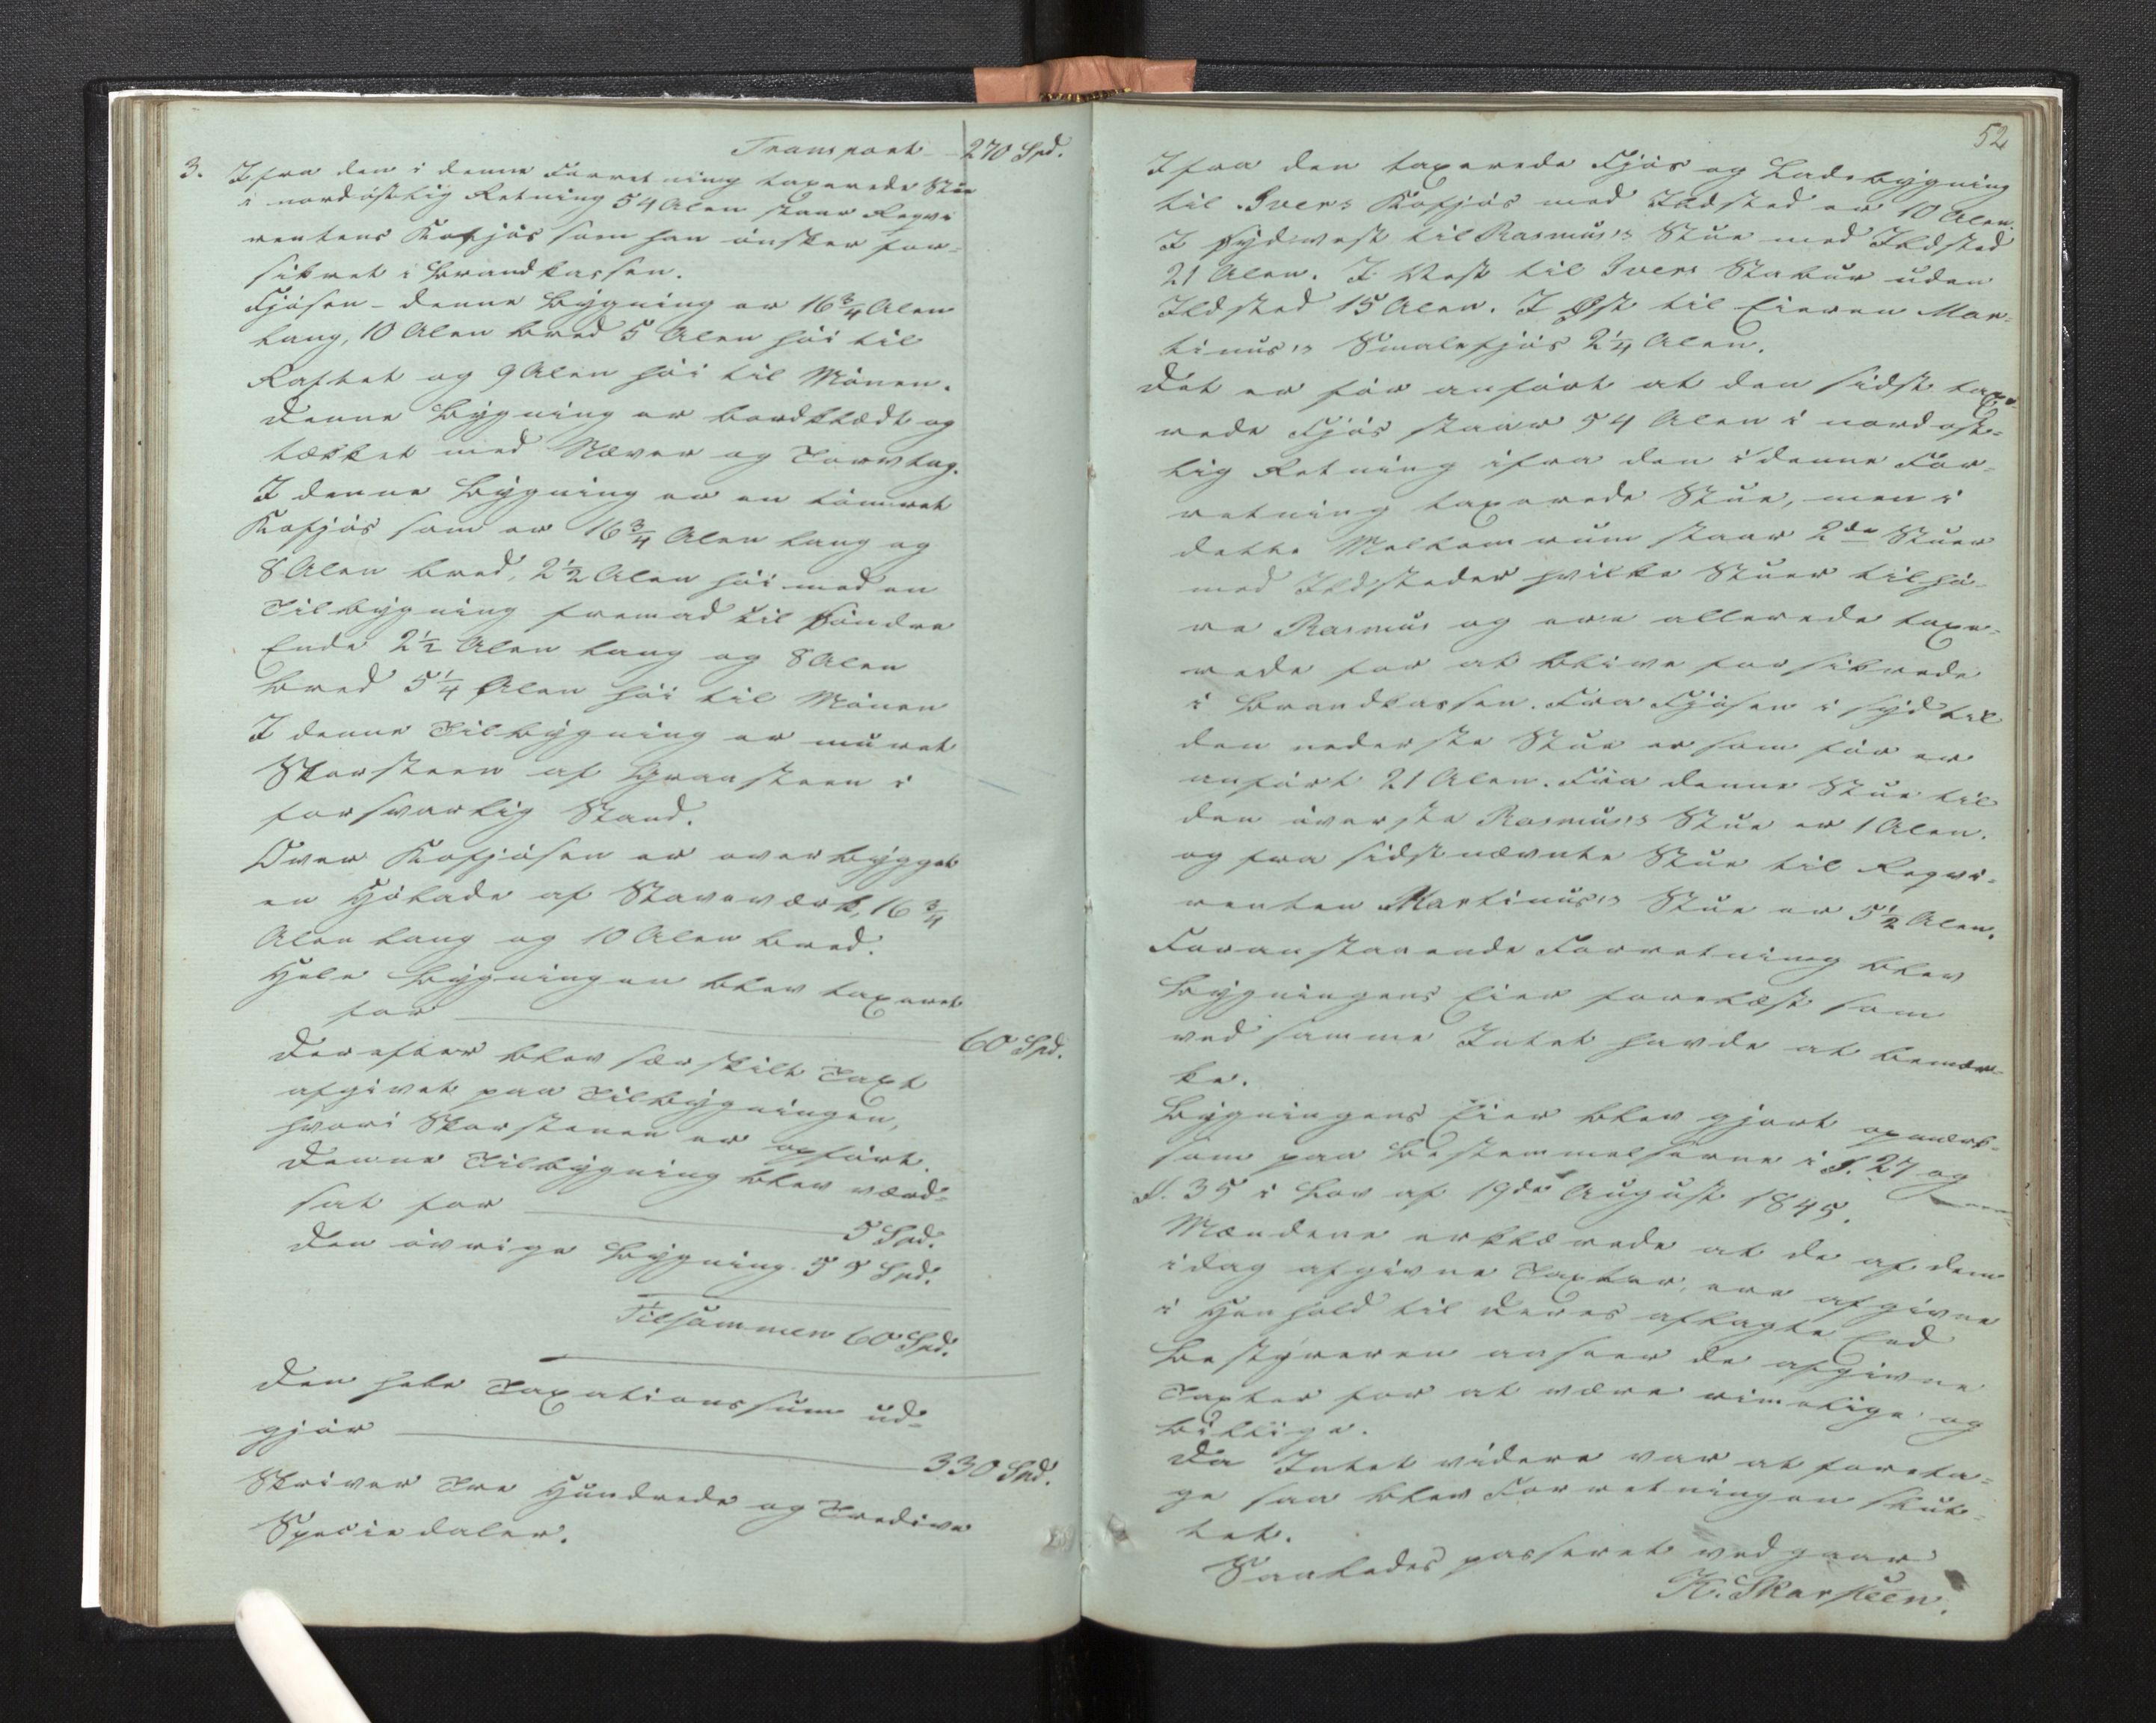 Transport 270 Spd.
3. Ifra den i denne Forretning taxerede Stue
i nordöstlig Retning 54 Alen staar Reqvi
rentens Kofjös som han önsker for-
sikret i Brandkassen.
Fjösen - denne Bygning er 16 3/4 Alen
lang, 10 Alen bred 5 Alen höi til
Raftet og 9 Alen höi til Mönen.
Denne Bygning er bordklædt og
tækket med Næver og Torvtag.
I denne Bygning er en tömret
Kofjös som er 16 3/4 Alen lang og
8 Alen bred, 2 1/2 Alen höi med en
Tilbygning fremad til söndre
Ende 2 1/2 Alen lang og 8 Alen
bred 5 1/4 Alen höi til Mönen
I denne Tilbygning er muret
Skorsteen af Graasteen i
forsvarlig Stand.
Over Kofjösen er overbygget
en Hölade af Staveværk, 16 3/4
Alen lang og 10 Alen bred.
Hele Bygningen blev taxeret
for 60 Spd.
Derefter blev særskilt Taxt
afgivet paa Tilbygningen,
hvori Skorstenen er opfört.
Denne Tilbygning blev værd-
sat for 5 Spd.
Den övrige Bygning 55 Spd.
Tilsammen 60 Spd.
Den hele Taxationssum ud-
gjör 330 Spd.
Skriver Tre Hundrede og Tredive
Speciedaler.
52
Ifra den taxerede Fjös og Ladebygning
til Ivers Kofjös med Ildsted er 10 Alen.
I Sydvest til Rasmus's Stue med Ildsted
21 Alen. I Vest til Ivers Stabur uden
Ildsted 15 Alen. I Öst til Eieren Mar-
tinus's Smalefjös 2 1/4 Alen.
Det er för anfört at den sidst taxe-
rede Fjös staar 54 Alen i nordöst-
lig Retning ifra den i denne For-
retning taxerede Stue, men i
dette Mellemrum staar 2de Stuer
med Ildsteder hvilke Stuer tilhö-
re Rasmus og ere allerede taxe-
rede for at blive forsikrede
i Brandkassen. Fra Fjösen i Syd til
den nederste Stue er som för er
anfört 21 Alen. Fra denne Stue til
den överste Rasmus's Stue er 1 Alen.
og fra sidstnævnte Stue til Reqvi-
renten Martinus's Stue er 5 1/2 Alen.
Foranstaaende Forretning blev
Bygningens Eier forelæst som
ved samme Intet havde at bemær-
ke.
Bygningens Eier blev gjort opmærk-
som paa Bestemmelserne i §. 27 og
§. 35 i Lov af 19de August 1845.
Mændene erklærede at de af dem
idag afgivne Taxter, ere afgivne
i Henhold til deres aflagte Eed
Bestyreren anseer de afgivne
Taxter for at være rimelige og
billige.
Da Intet videre var at foreta-
ge saa blev Forretningen slut-
tet.
Saaledes passeret vedgaar
K. Skarsteen.